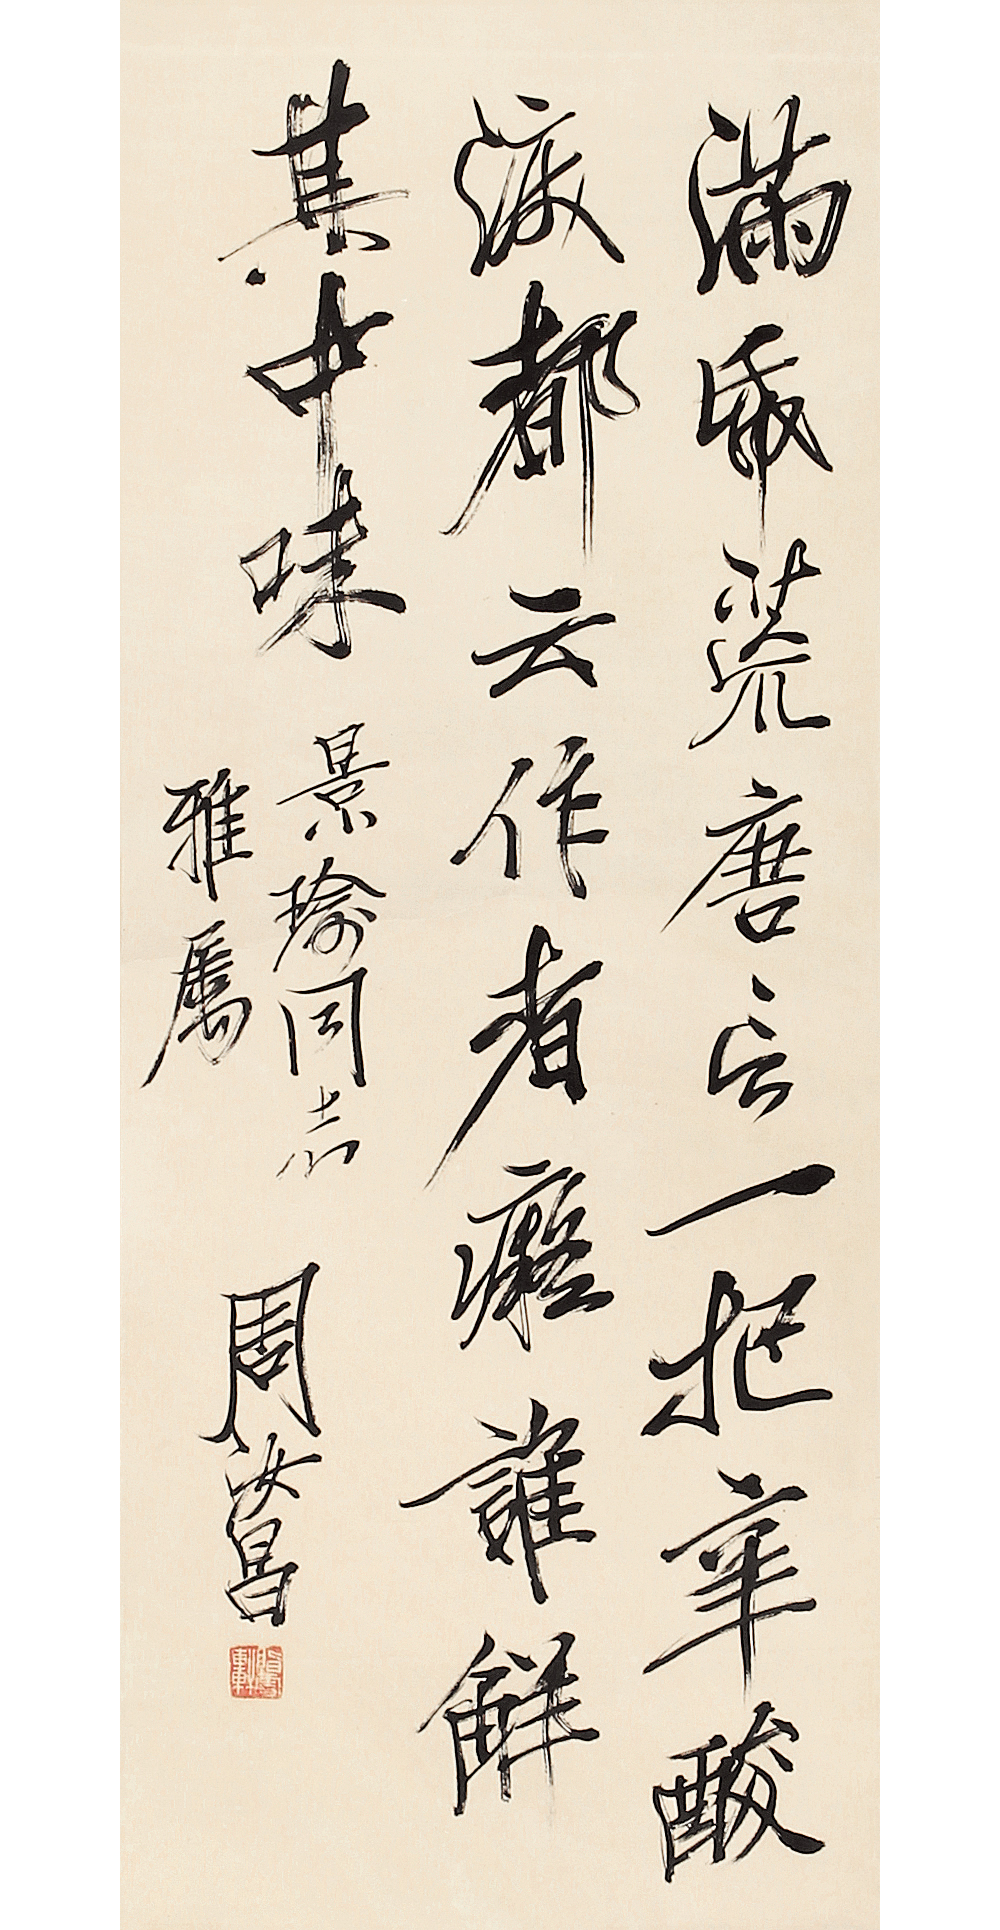 滿帋荒唐言一把辛酸
淚都云作者癡誰觧
其中味
景瑜同志
雅属
周汝昌